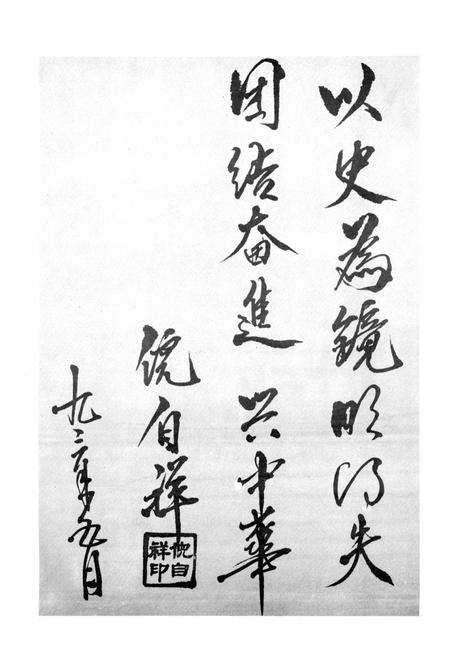 以史為鏡明得失
团结奋進 兴中華
倪自祥
九三年九月
倪自祥印